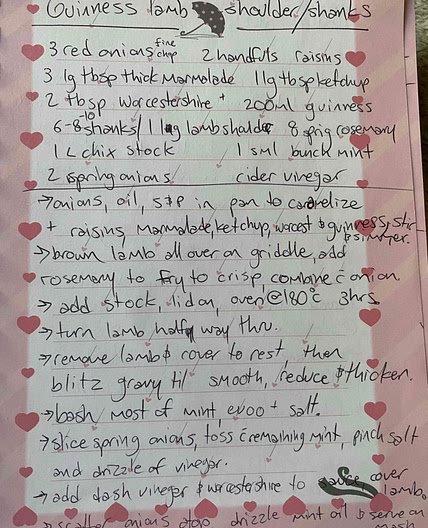 Guinness lamb shoulder/shanks
3 red onions fine chop 2 handfuls raisins
3 lg tbsp thick marmalade 1 lg tbsp ketchup
2 tbsp worcestershire + 200ml guinness
6-8-10 shanks/1 lg lamb shoulder 8 sprig rosemary
1L chix stock 1 sml bunch mint
2 spring onions cider vinegar
→onions, oil, s+p in pan to caramelize
+ raisins, marmalade, ketchup, worcest & guinness, stir & simmer.
→brown lamb all over on griddle, add
rosemary to fry to crisp, combine c̄ onion.
→ add stock, lid on, oven @180°c 3hrs
→turn lamb half way thru.
→remove lamb & cover to rest then
blitz gravy til smooth, reduce & thicken.
→bash most of mint, evoo + salt.
→slice spring onions, toss c̄ remaining mint, pinch salt
and drizzle of vinegar.
→add dash vinegar & worcestershire to sauce cover lamb.
→scatter onions atop drizzle mint oil & serve on mash